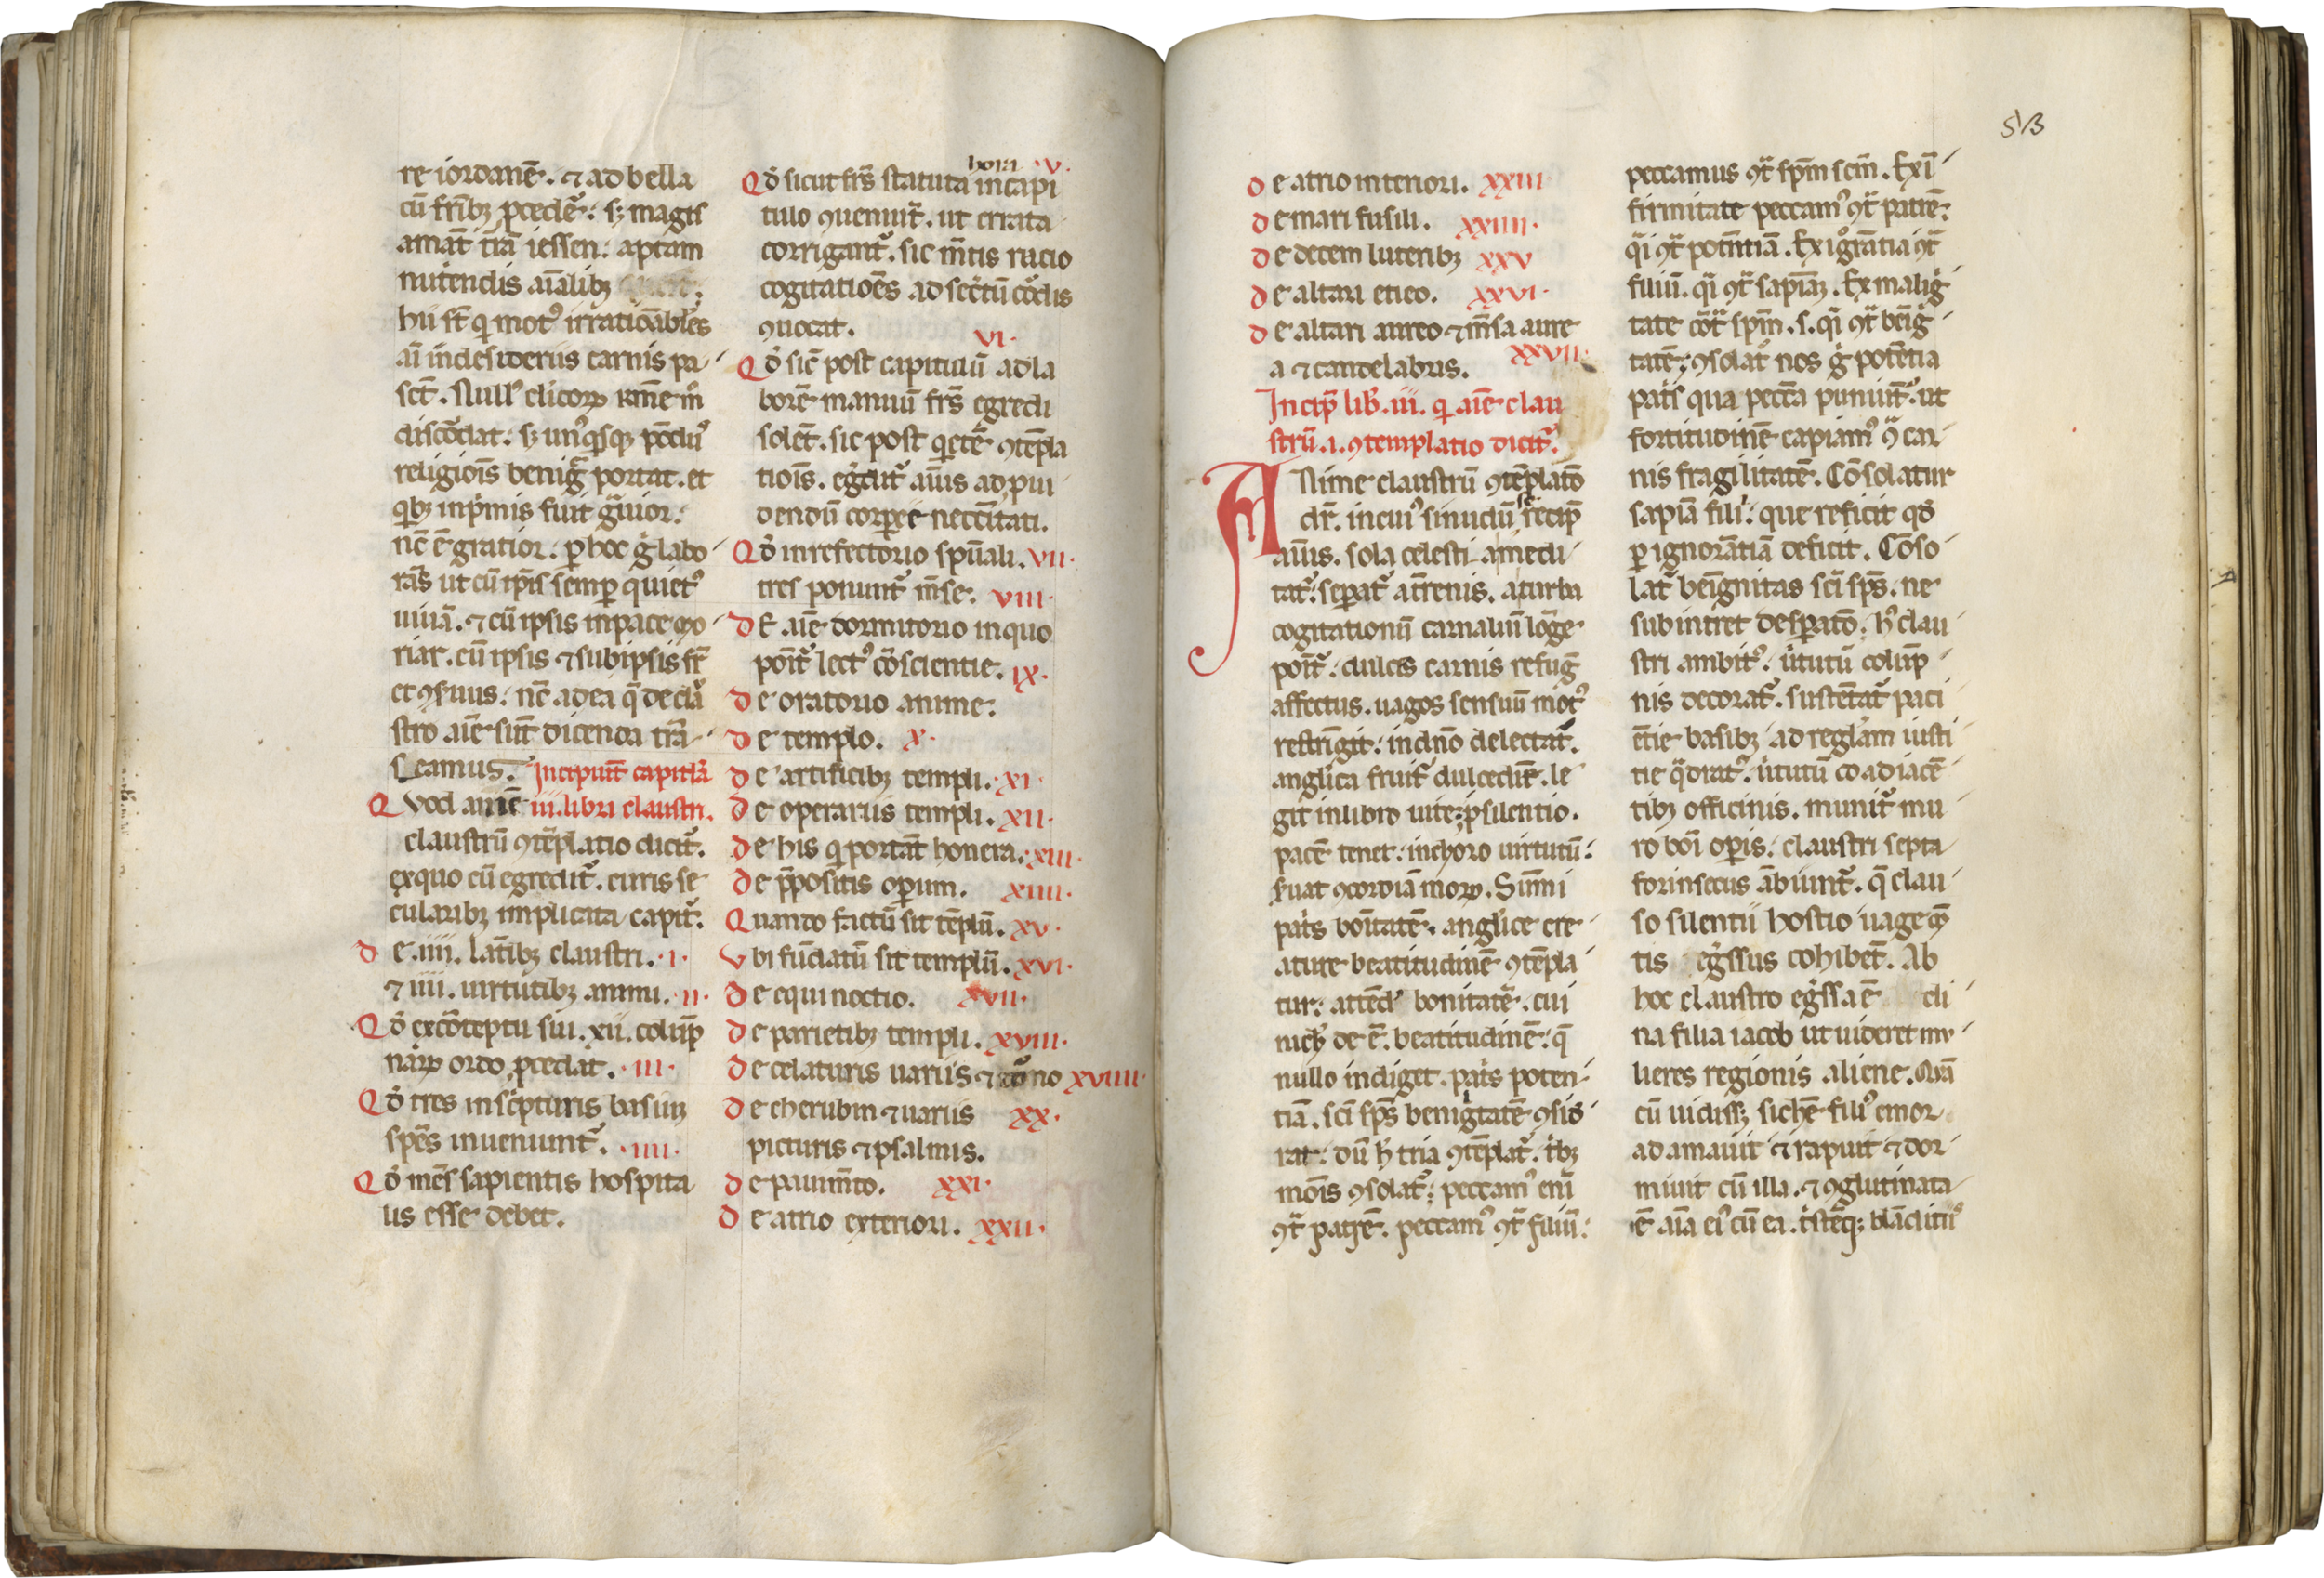 re iordanē. ⁊ ad bella
cū frībꝫ ꝓcedē. sꝫ magis
amāt t̄rā iessen: aptam
nutendis aīalibꝫ
hii st̄ qi motꝰ irratiōabiles
aī in desideriis carnis pa
sct̄. Nullꝰ clicoꝝ
discordat: sꝫ unꝰqisqꝫ
religiois beniḡ portat. et
qibꝫ inpͥmis fuit gͣuior:
nc̄ ē gratior. ꝑ hoc gͦ labo
ras ut cū ip̄is semꝑ quietꝰ
uiuā. ⁊ cū ipsis in pace mo
riar. cū ipsis ⁊ sub ipsis
nc̄ ad ea q̄ de clā
stro aīe sūt dicenda trā
seamus. Incipiūt capitl̄a
Qvod aīme iii. libri claustri.
claustrū ꝯtēplatio dicitᷣ.
ex quo cū egreditᷣ. curis se
cularibꝫ implicita capitᷣ.
de .iiii. lat̄ibꝫ claustri. .i.
⁊ iiii. uirtutibꝫ animi. .ii.
Qd̄ ex cōteptu sui .xii. colūp̄
naꝝ ordo ꝓcedat. .iii.
Qd̄ tres in scͥpturis basiuꝫ
spēs inueniuntᷣ. .iiii.
Qd̄ mēs sapientis hospita
lis esse debet.
hora v.
Qd̄ sicut frs̄ statuta in capi
tulo ꝯueniūt. ut errata
corrigantᷣ. sic m̄tis racio
cogitatiōes ad secͥtū cordis
ꝯuocat. vi.
Qd̄ sic̄ post capitulū ad la
borē manuū frs̄ egredi
solēt. sic post qietē ꝯtēpla
tiois. egͥditᷣ aīus ad ꝓui
dendū corꝑee neccītati.
Qd̄ in refectorio spūali. vii.
tres ponuntᷣ m̄se. viii.
dE aīe dormitorio in quo
poītᷣ lectꝰ cōscientie. ix.
de oratorio anime:
de templo. x.
de artificibꝫ templi. xi.
de operariis templi. xii.
de his qi portāt honera. xiii.
de p̄positis oꝑum. xiiii.
Quando factū sit tēplū. xv.
vbi fūdatū sit templū. xvi.
de equinoctio. xvii.
de parietibꝫ templi. xviii.
de celaturis uariis ⁊ xviiii.
de cherubin ⁊ uariis xx.
picturis ⁊ psalmis.
de pauim̄to. xxi.
de atrio exteriori. xxii.
513
de atrio interiori. xxiii.
de mari fusili. xxiiii.
de decem luteribꝫ xxv
de altari eneo. xxvi.
de altari aureo ⁊ m̄sa aure
a ⁊ candelabris. xxvii.
Incip̄ lib̄. iii. qi aīe clau
strū .i. ꝯtemplatio dicitᷣ.
ANime claustrū ꝯtēplatō
dr̄. in cuiꝰ sinu dū se recip̄
aīus. sola celesti a medi
tatᷣ. seꝑatᷣ a t̄renis. a turba
cogitationū carnaliū lōge
poītᷣ. dulcis carnis refuḡ
affectus. uagos sensuū motꝰ
restrīgit. in dn̄o delectatᷣ.
anglica fruitᷣ dulcedīe. le
git in libro uite. ꝑ silentio.
pacē tenet. in choro uirtutū:
ꝯcordiā moꝝ. Sūmi
patͥs boītatē. anglice cre
ature beatitudinē ꝯtēpla
tur: attēdͥ bonitatē. cui
nichͥ de ē. beatitudinē: q̄
nullo indiget. patͥs poten
tiā. sci sp̄s benigͥtatē ꝯsid
rat. dū h̄ tria ꝯtēplatᷣ. tͥbꝫ
modis ꝯsolatᷣ. peccamꝰ enī
ꝯtͣ patrē. peccamꝰ ꝯtͣ filiū:
peccamus ꝯtͣ spm̄ scm̄. Ex ī
firmitate peccamꝰ ꝯtͣ patrē:
qͣi ꝯtͣ potn̄tiā. Ex igͦrātia ꝯtͣ
filiū. qͣi ꝯtͣ sapiāꝫ. Ex maligͥ
tate cōtͣ spm̄. s. qͣi ꝯtͣ benigͥ
tatē. ꝯsolatᷣ nos gͦ potētia
patͥs qua peccā puniūtᷣ. ut
fortitudinē capiamꝰ ꝯͣ car
nis fragilitatē. Cōsolatur
sapiā filiͥ: que reficit qd̄
ꝑ ignorātiā deficit. Cōso
latᷣ benīgnitas sci sp̄s. ne
subintret desꝑatō. hͥ clau
stri ambitꝰ. uͥtutū colūp̄
nis decoratᷣ. sustentatᷣ paci
ētie basibꝫ. ad regl̄am iusti
tie qͣdratᷣ. uͥtutū co adiacē
tibꝫ officinis. munitᷣ mu
ro boī oꝑis. claustri septa
forinsecus ābiuntᷣ. q̄ clau
so silentii hostio uage mē
tis egͥssus cohibēt. Ab
hoc claustro egͥssa ē di
na filia iacob ut uideret mu
lieres regionis aliene. Quā
cū uidissꝫ sichē filiꝰ emor
adamauit ⁊ rapuit ⁊ dor
miuit cū illa. ⁊ ꝯglutinata
ē aīa eiꝰ cū ea. tͥstēqꝫ blādiitiͥs